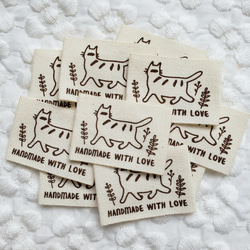 HANDMADE WITH LOVE
HANDMADE WITH LOVE
HANDMADE WITH LOVE
HANDMADE WITH LOVE
HANDMADE WITH LOVE